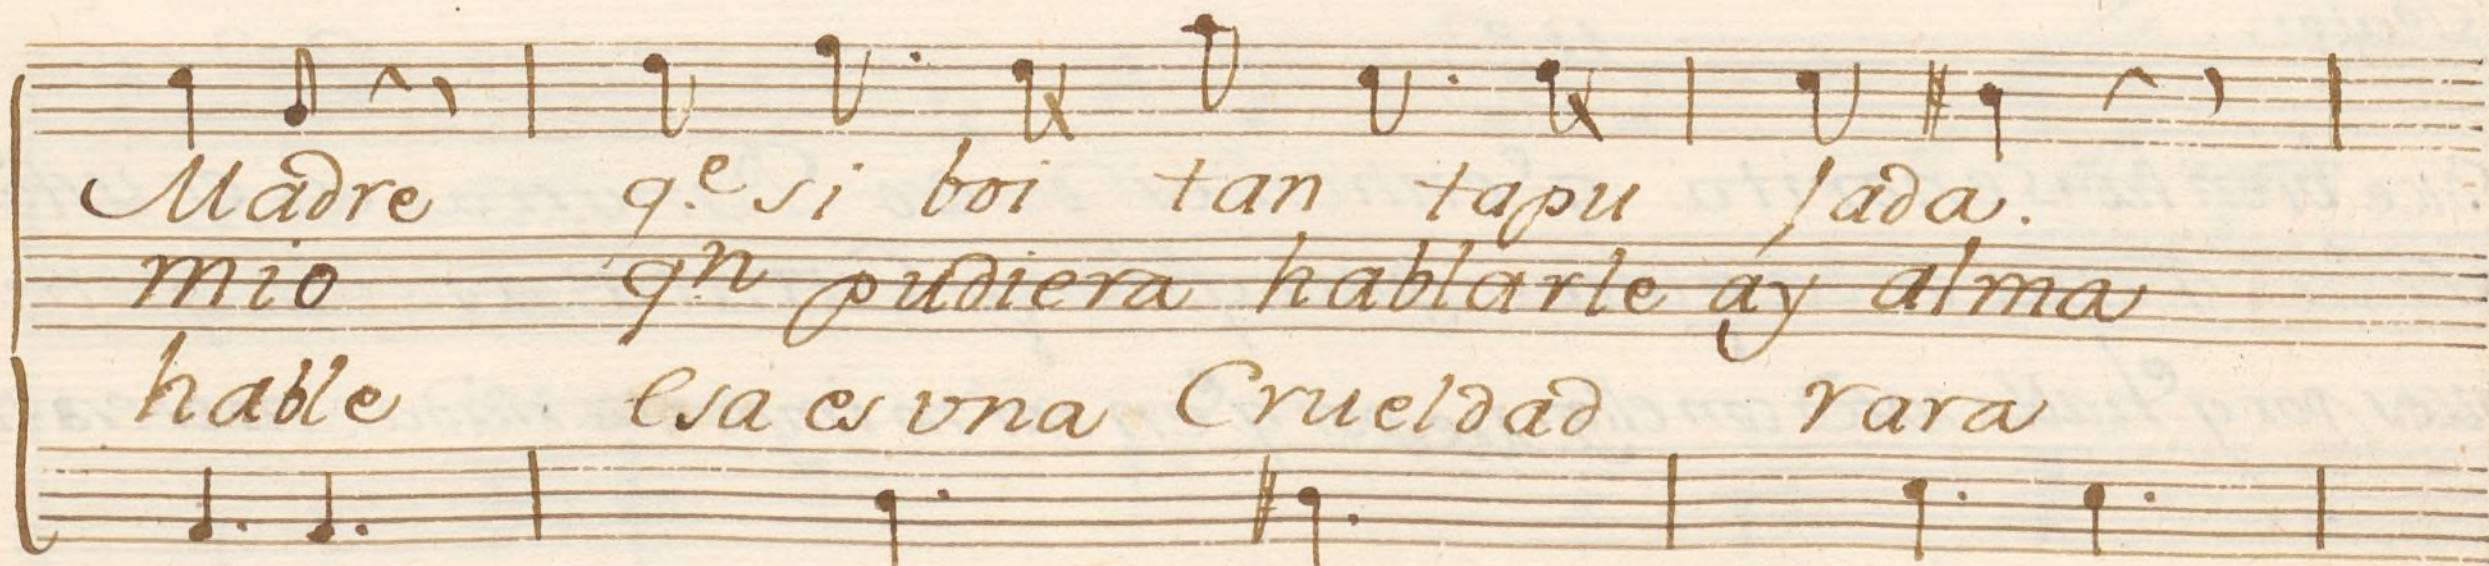 Madre q.e si boi tan tapu jada.
mio q.n pudiera hablarle áy alma
hable esa es vna Crueldad rara